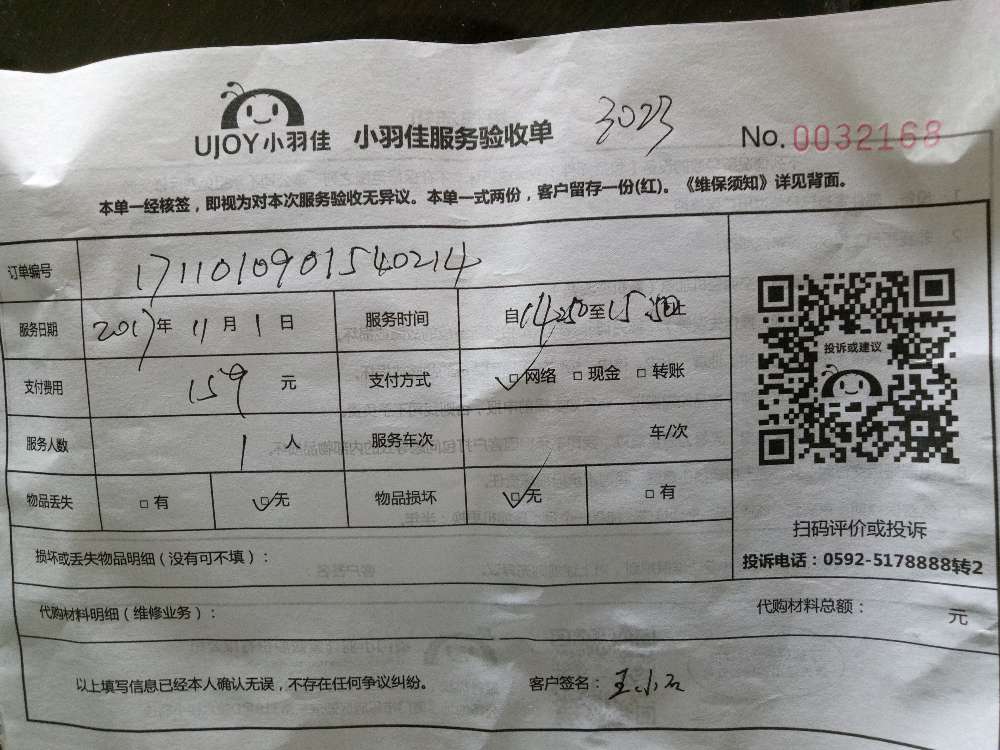 UJOY小羽佳 小羽佳服务验收单 3023 No. 0032168
本单一经核签，即视为对本次服务验收无异议。本单一式两份，客户留存一份(红)。《维保须知》详见背面。
订单编号 1711010901540214
服务日期 2017年 11月 1日 服务时间 自14:50至15:50止
支付费用 159 元 支付方式 ☑网络 □现金 □转账
投诉或建议
服务人数 1 人 服务车次 车/次
物品丢失 □有 ☑无 物品损坏 ☑无 □有
扫码评价或投诉
损坏或丢失物品明细（没有可不填）：
投诉电话：0592-5178888转2
代购材料明细（维修业务）： 代购材料总额： 元
以上填写信息已经本人确认无误，不存在任何争议纠纷。 客户签名：王小